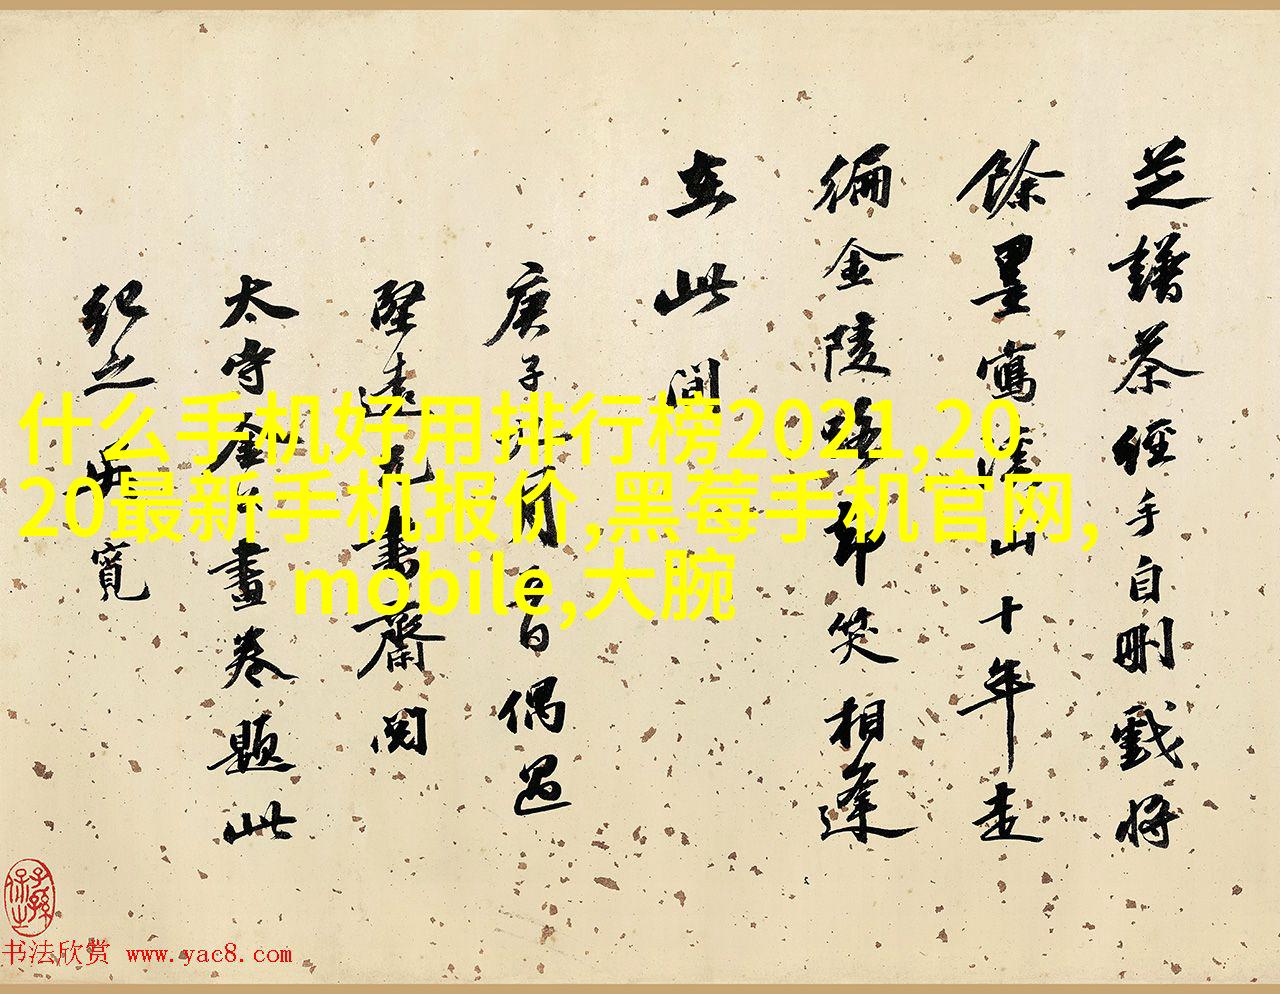 芝譜茶經手自刪戲將
餘墨寫山十年走
徧金陵路却笑相逢
在此間
庚子月日偶過
堅遠書齋閱
太守金畫卷題此
紀之寬
什么手机好用排行榜2021,20
20最新手机报价,黑莓手机官网,
mobile,大腕
书法欣赏 www.yac8.com